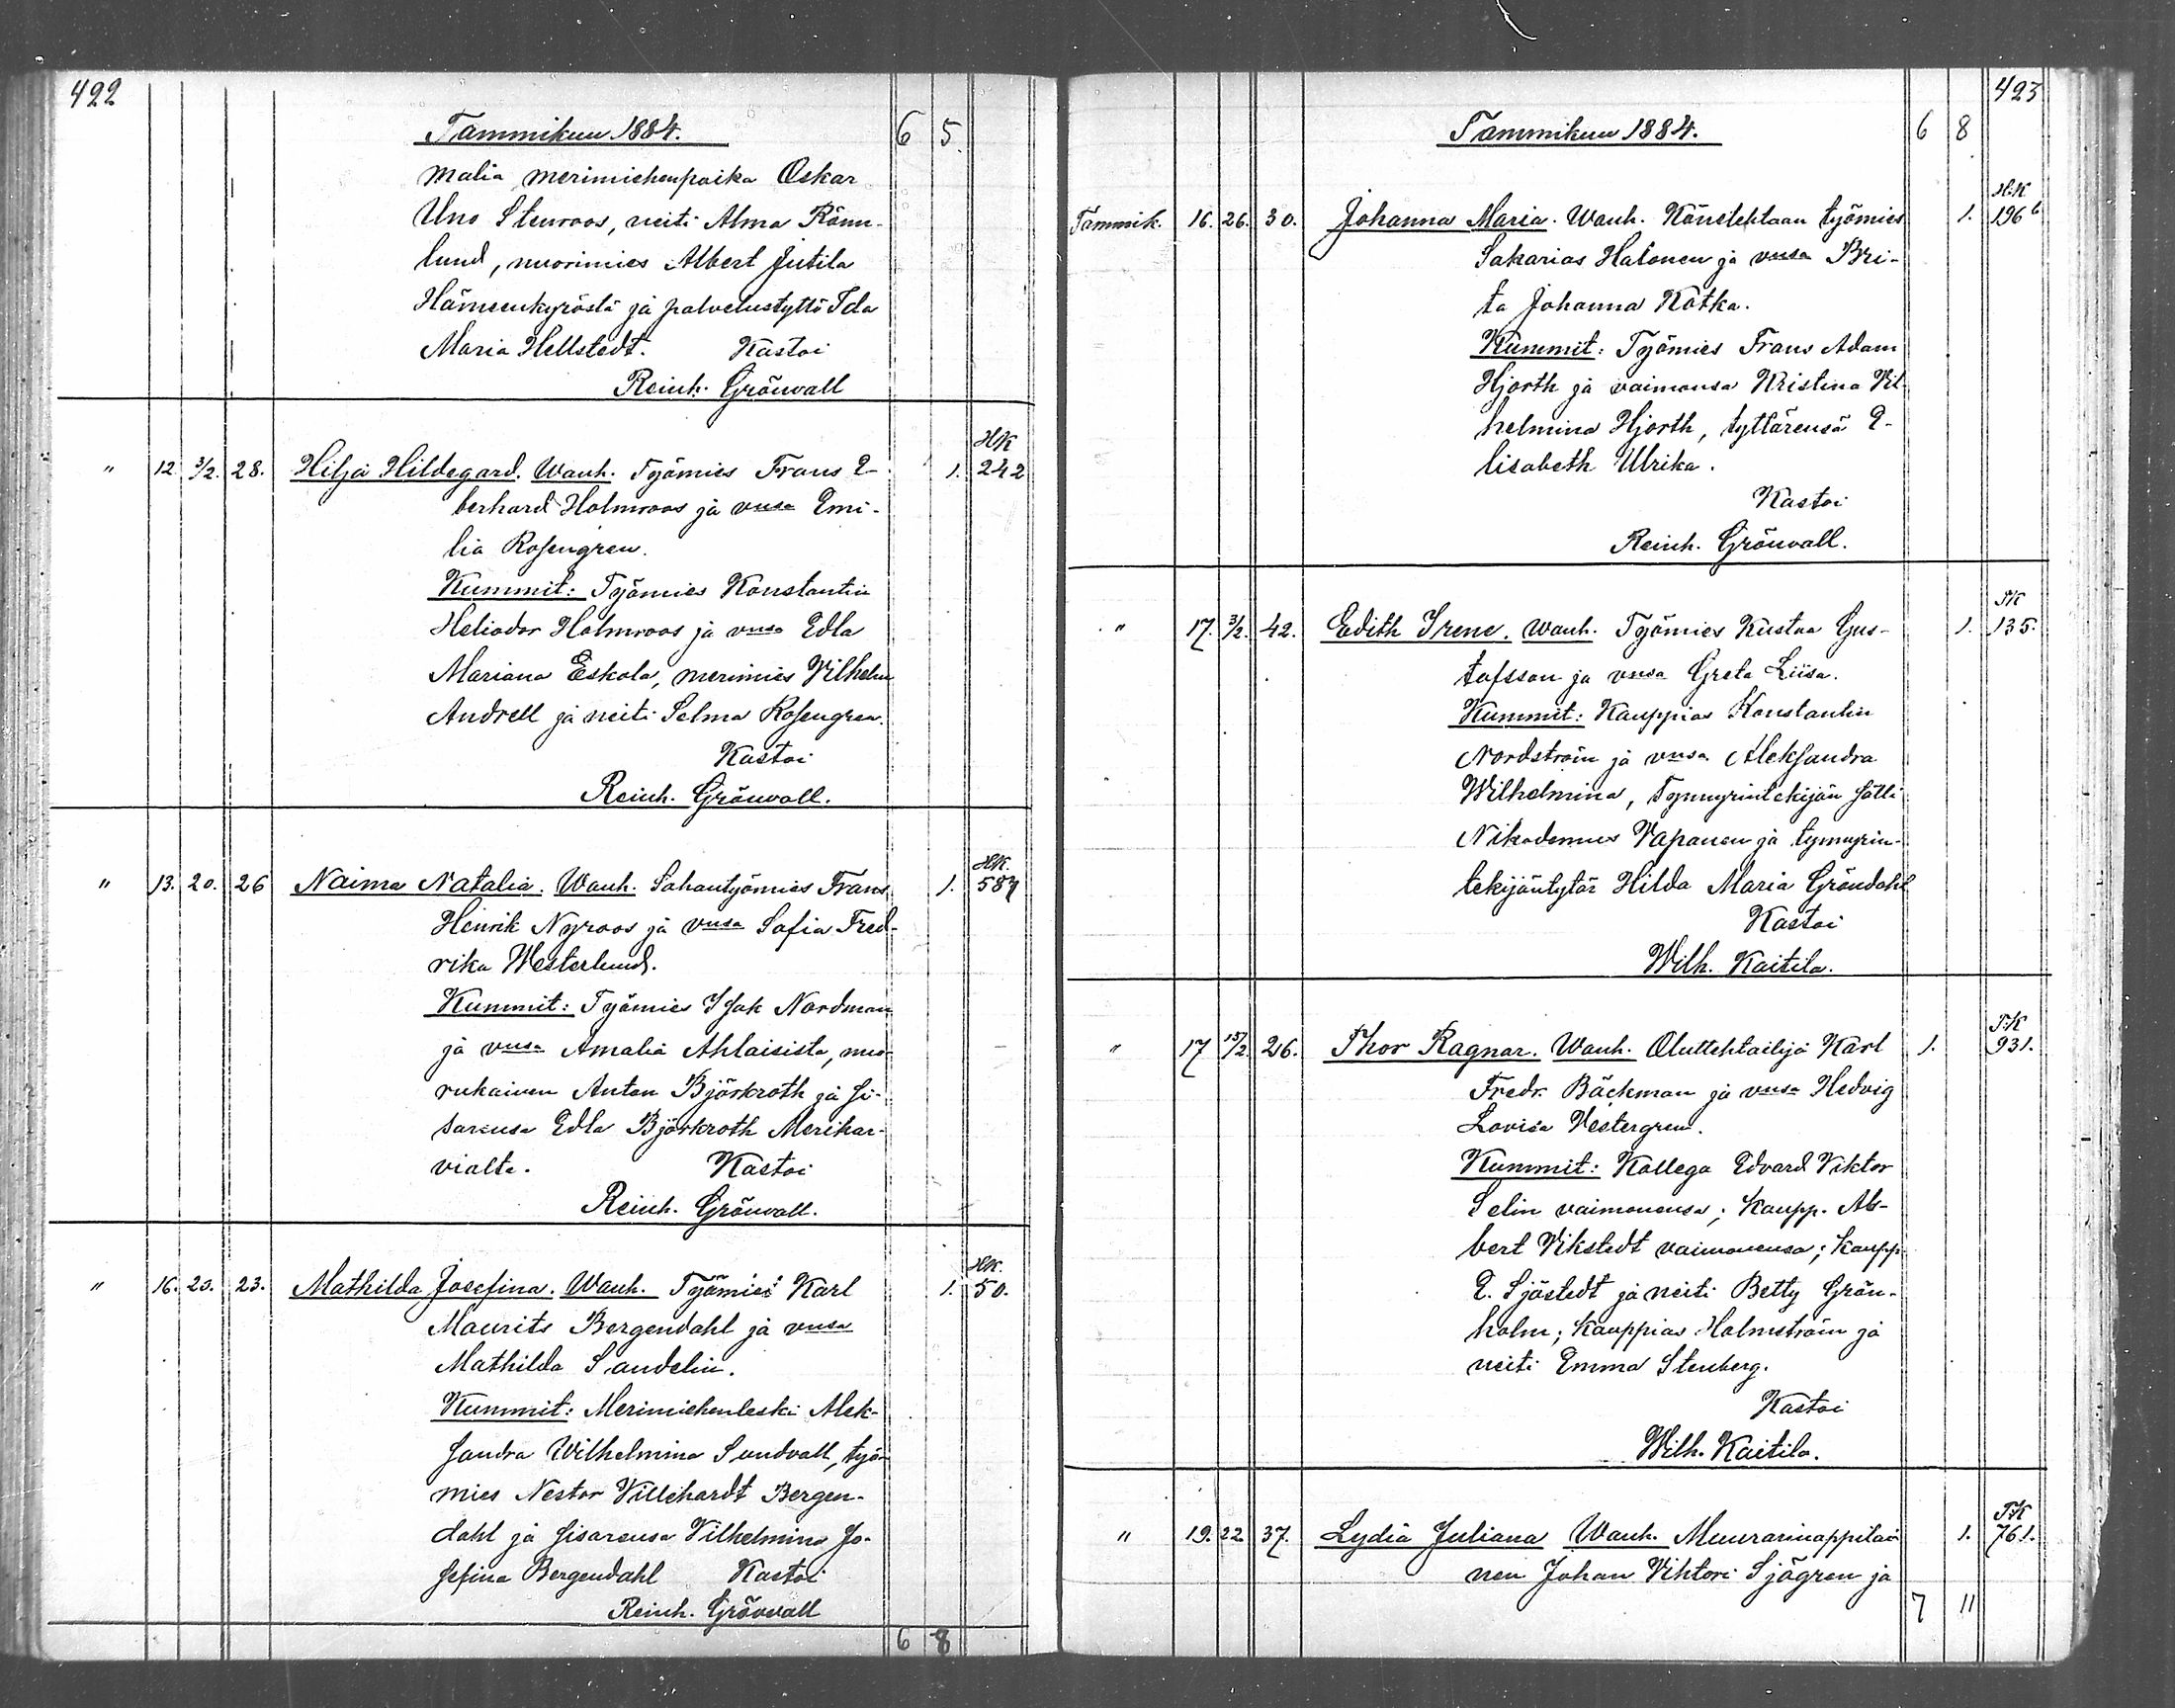 422
Tammikuu 1884. 6 5
malia, merimiehenpoika Oskar
Uno Stenroos, neiti Alma Rönn-
lund, nuorimies Albert Jutila
Hämeenkyröstä ja palvelustyttö Ida
Maria Hellstedt. Kastoi
Reinh. Grönvall
HK
" 12. 3/2. 28. Hilja Hildegard. Wanh. Työmies Frans E- 1. 242
berhard Holmroos ja vmsa Emi-
lia Rosengren.
Kummit: Työmies Konstantin
Heliodor Holmroos ja vmsa Edla
Mariana Eskola, merimies Vilhelm
Andrell ja neiti Selma Rosengren.
Kastoi
Reinh. Grönvall.
HK.
" 13. 20. 26 Naima Natalia. Wanh. Sahantyömies Frans 1. 587
Henrik Nyroos ja vmsa Sofia Fred-
rika Westerlund.
Kummit: Työmies Isak Nordman
ja vmsa Amalia Ahlaisista, nuo-
rukainen Anton Björkroth ja si-
sarensa Edla Björkroth Merikar-
vialta. Kastoi
Reinh. Grönvall.
HK.
" 16. 20. 23. Mathilda Josefina. Wanh. Työmies Karl 1. 50.
Maurits Bergendahl ja vmsa
Mathilda Sandelin.
Kummit: Merimiehenleski Alek-
sandra Wilhelmina Sundvall, työ-
mies Nestor Villehardt Bergen-
dahl ja sisarensa Vilhelmina Jo-
sefina Bergendahl Kastoi
Reinh. Grönvall
6 8
423
Tammikuu 1884. 6 8
H.K
Tammik. 16. 26. 30. Johanna Maria. Wanh. Könetehtaan työmies 1. 196 b
Sakarias Halonen ja vmsa Bri-
ta Johanna Kotka.
Kummit: Työmies Frans Adam
Hjorth ja vaimonsa Kristina Vil-
helmina Hjorth, tyttärensä E-
lisabeth Ulrika.
Kastoi
Reinh. Grönvall.
TK
" 17. 3/2. 42. Edith Irene. Wanh. Työmies Kustaa Gus- 1. 135.
tafsson ja vmsa Greta Liisa.
Kummit: Kauppias Konstantin
Nordström ja vmsa Aleksandra
Wilhelmina, Tynnyrintekijän sälli
Nikodemus Vapanen ja tynnyrin-
tekijäntytär Hilda Maria Gröndahl
Kastoi
Wilh. Kaitila.
T.K
" 17 15/2 26. Thor Ragnar. Wanh. Oluttehtailija Karl 1. 931.
Fredr. Bäckman ja vmsa Hedvig
Lovisa Vestergren.
Kummit: Kollega Edvard Viktor
Selin vaimonensa; Kaupp. Al-
bert Vikstedt vaimonensa; Kaupp.
E. Sjöstedt ja neiti Betty Grön-
holm; Kauppias Holmström ja
neiti Emma Stenberg.
Kastoi
Wilh. Kaitila.
T.K
" 19. 22 37. Lydia Juliana Wanh. Muurarinoppilai- 1. 761.
nen Johan Vihtori Sjögren ja
7 11